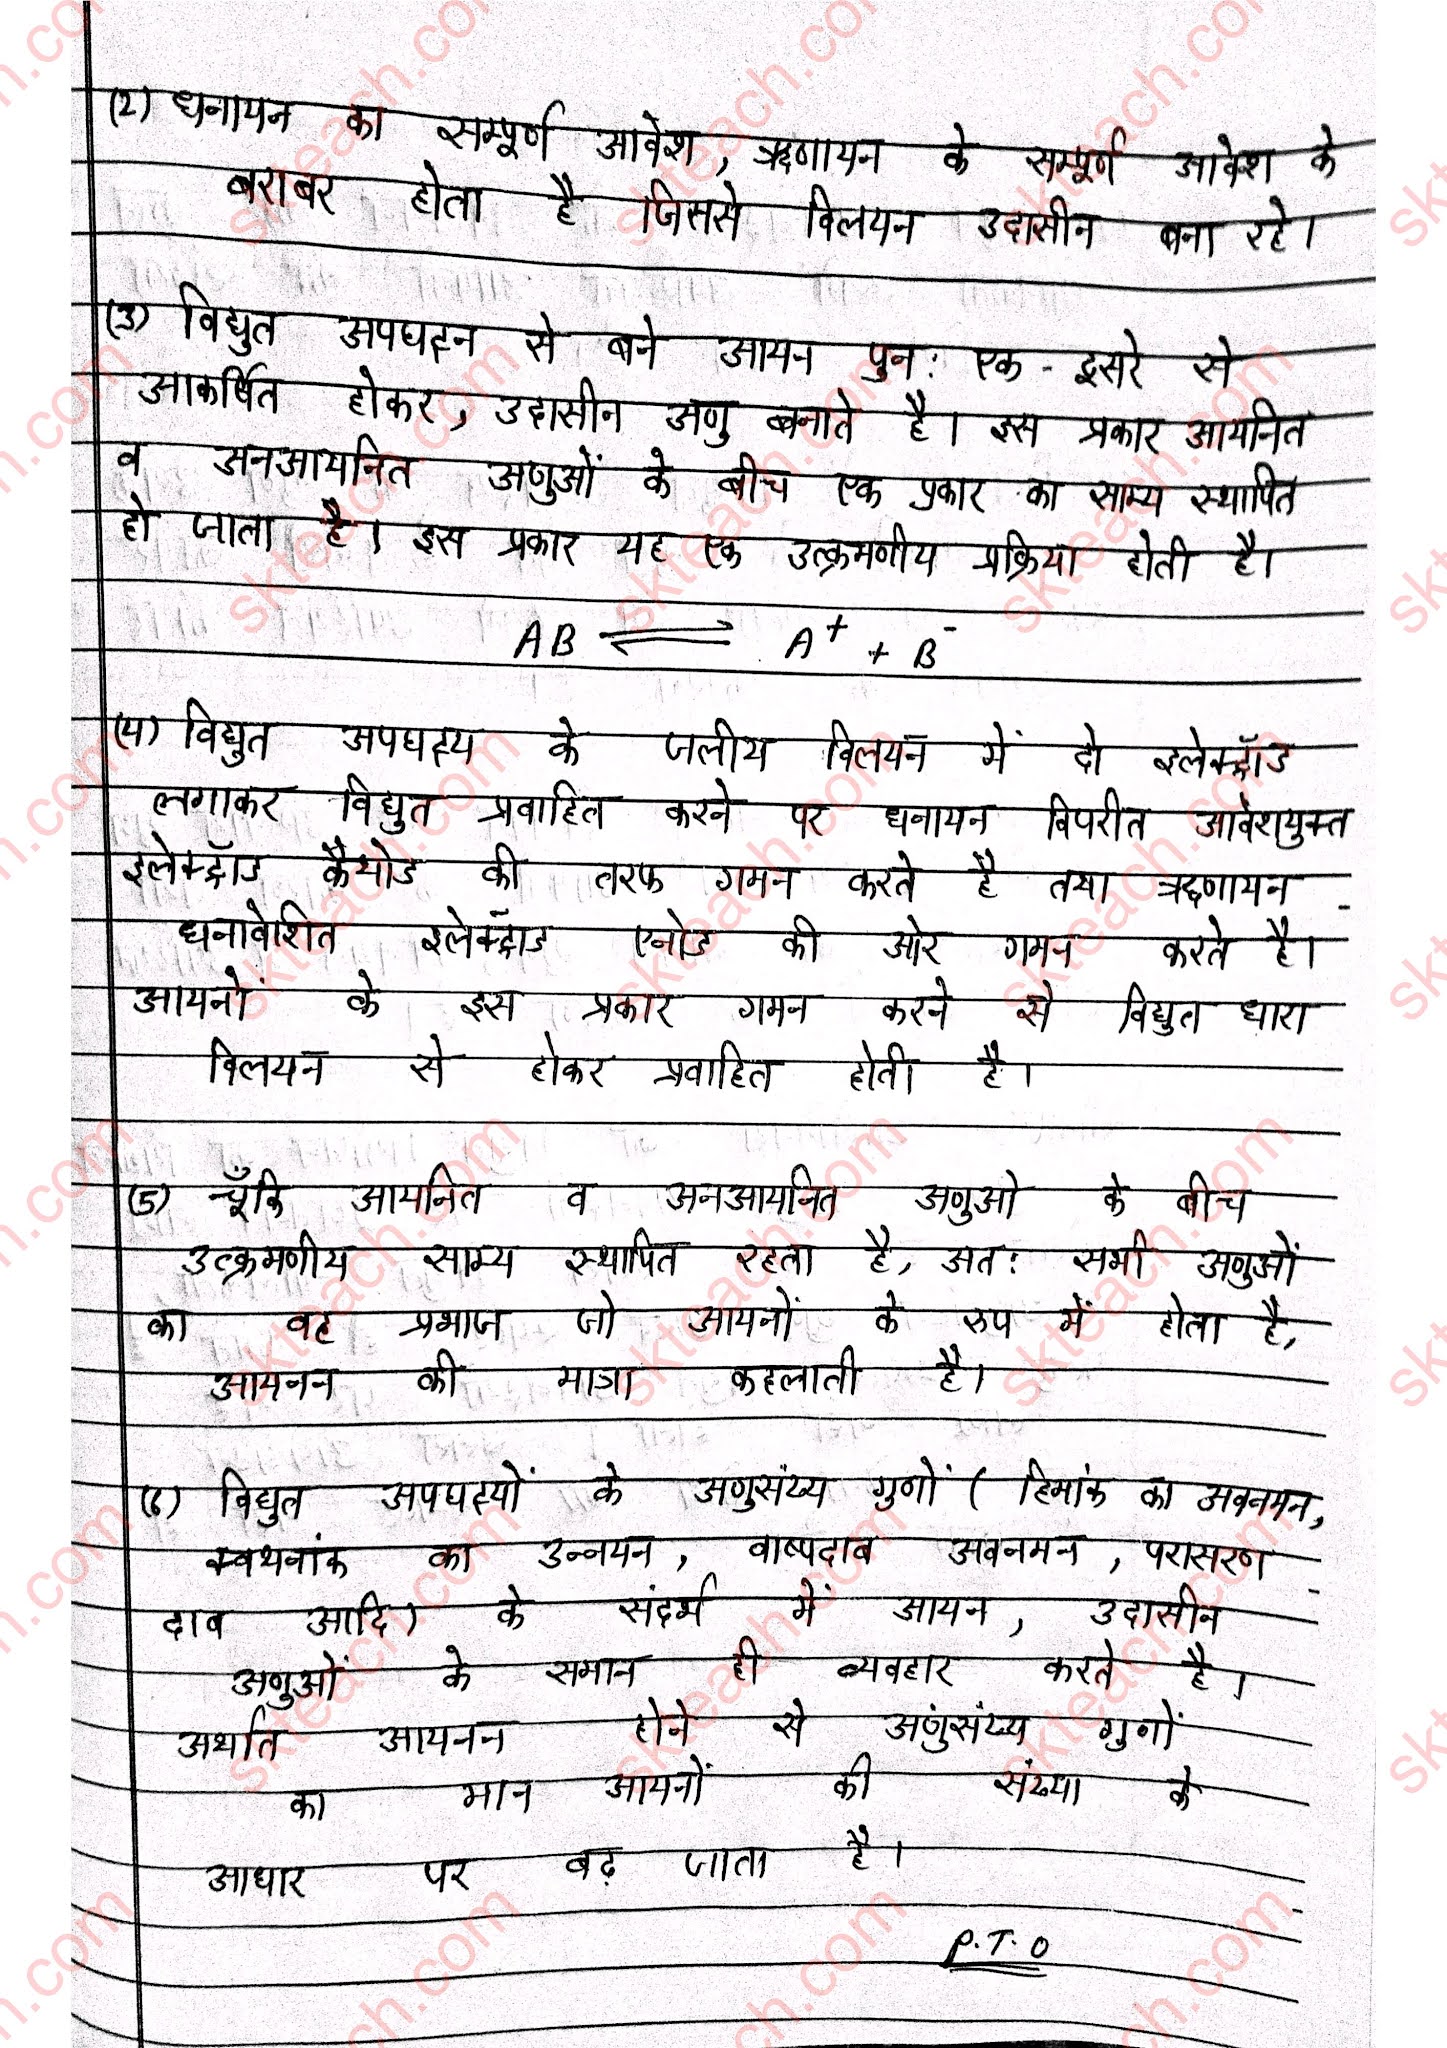 (2) धनायन का सम्पूर्ण आवेश, ऋणायन के सम्पूर्ण आवेश के
बराबर होता है जिससे विलयन उदासीन बना रहे।
(3) विद्युत अपघटन से बने आयन पुन: एक - दूसरे से
आकर्षित होकर, उदासीन अणु बनाते है। इस प्रकार आयनित
व अनआयनित अणुओं के बीच एक प्रकार का साम्य स्थापित
हो जाता है। इस प्रकार यह एक उत्क्रमणीय प्रक्रिया होती है।
AB ⇌ A⁺ + B⁻
(4) विद्युत अपघट्य के जलीय विलयन में दो इलेक्ट्रॉड
लगाकर विद्युत प्रवाहित करने पर धनायन विपरीत आवेशयुक्त
इलेक्ट्रॉड कैथोड की तरफ गमन करते है तथा ऋणायन
धनावेशित इलेक्ट्रॉड एनोड की ओर गमन करते है।
आयनों के इस प्रकार गमन करने से विद्युत धारा
विलयन से होकर प्रवाहित होती है।
(5) चूँकि आयनित व अनआयनित अणुओ के बीच
उत्क्रमणीय साम्य स्थापित रहता है, अत: सभी अणुओं
का वह प्रभाज जो आयनों के रुप में होता है,
आयनन की मात्रा कहलाती है।
(6) विद्युत अपघट्यों के अणुसंख्य गुणों (हिमांक का अवनमन,
क्वथनांक का उन्नयन, वाष्पदाब अवनमन, परासरण
दाब आदि) के संदर्भ में आयन, उदासीन
अणुओं के समान ही व्यवहार करते है।
अर्थात आयनन होने से अणुंसंख्य गुणों
का मान आयनों की संख्या के
आधार पर बढ़ जाता है।
P.T.O
skteach.com